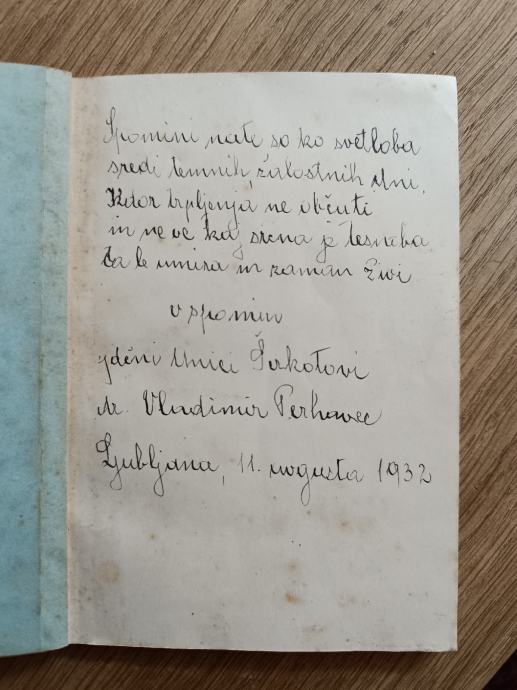 Spomini nate so ko svetloba
sredi temnih, žalostnih dni.
Kdor trpljenja ne občuti
in ne ve kaj srčna je tesnoba
ta le umira in zaman živi
v spomin
Šerkotovi
dr. Vladimir Perhavec
Ljubljana, 11. avgusta 1932